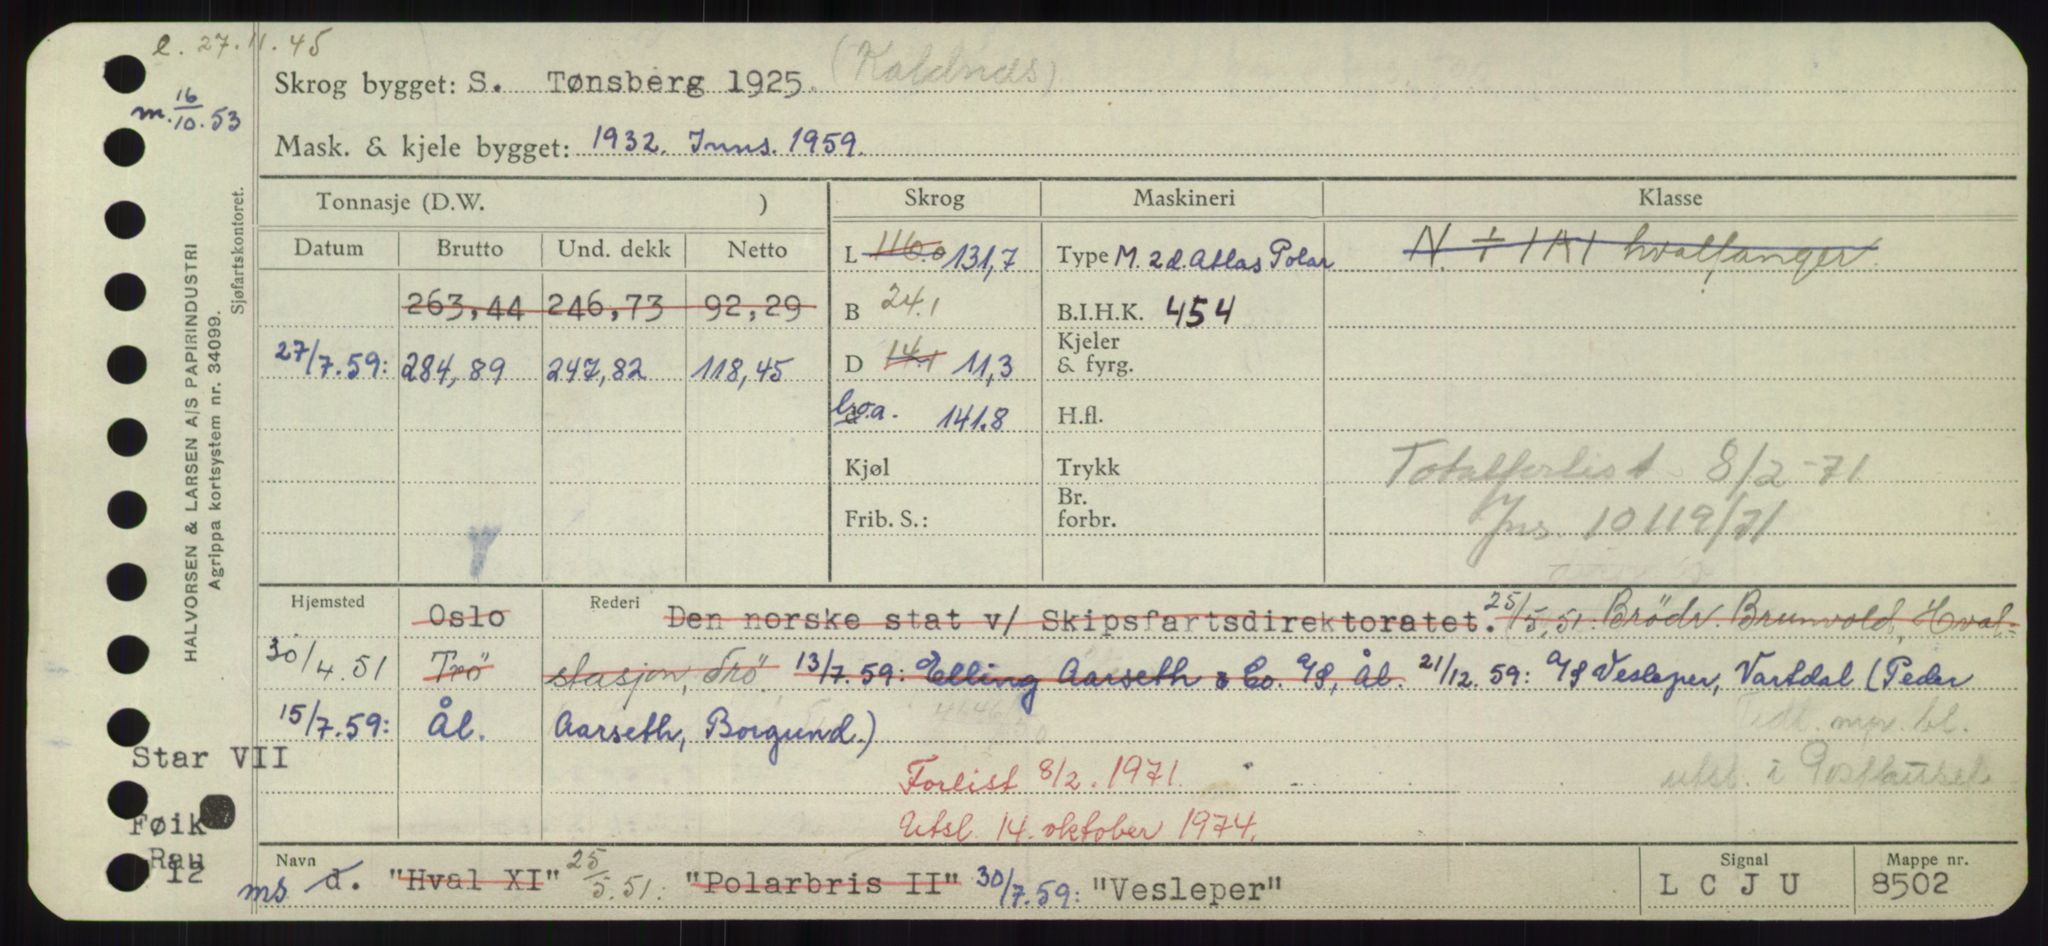 e. 27.11.45
m. 16/10.53
Skrog bygget: S. Tønsberg 1925. (Kaldnæs)
Mask. & kjele bygget: 1932. Inns. 1959.
HALVORSEN & LARSEN A/S PAPIRINDUSTRI
Agrippa kortsystem nr. 34099.
Sjøfartskontoret.
Tonnasje (D.W. )
Skrog Maskineri Klasse
Datum Brutto Und. dekk Netto
L 116.0 131,7 Type M. 2 d. Atlas Polar N. ÷ 1A1 hvalfanger
263,44 246,73 92,29 B 24.1 B.I.H.K. 454
27/7.59: 284,89 247,82 118,45 D 14.1 11,3 Kjeler & fyrg.
l.o.a. 141.8 H.fl.
Kjøl Trykk Totalforlist 8/2-71
Frib. S.: Br. forbr. Jns. 10119/71
Hjemsted Oslo Rederi Den norske stat v/ Skipsfartsdirektoratet. 25/5.51: Brödr. Brunvold, Hval-
30/4.51 Trö stasjon, Trö 13/7.59: Elling Aarseth & Co. A/S, Ål. 21/12.59: A/S Vesleper, Vartdal (Peder
15/7.59: Ål. Aarseth, Borgund.)
Star VII Forlist 8/2.1971. utsl. i
Føik Utsl. 14. oktober 1974.
Rau
12
Navn ms d. "Hval XI" 25/5.51: "Polarbris II" 30/7.59: "Vesleper"
Signal L C J U
Mappe nr. 8502